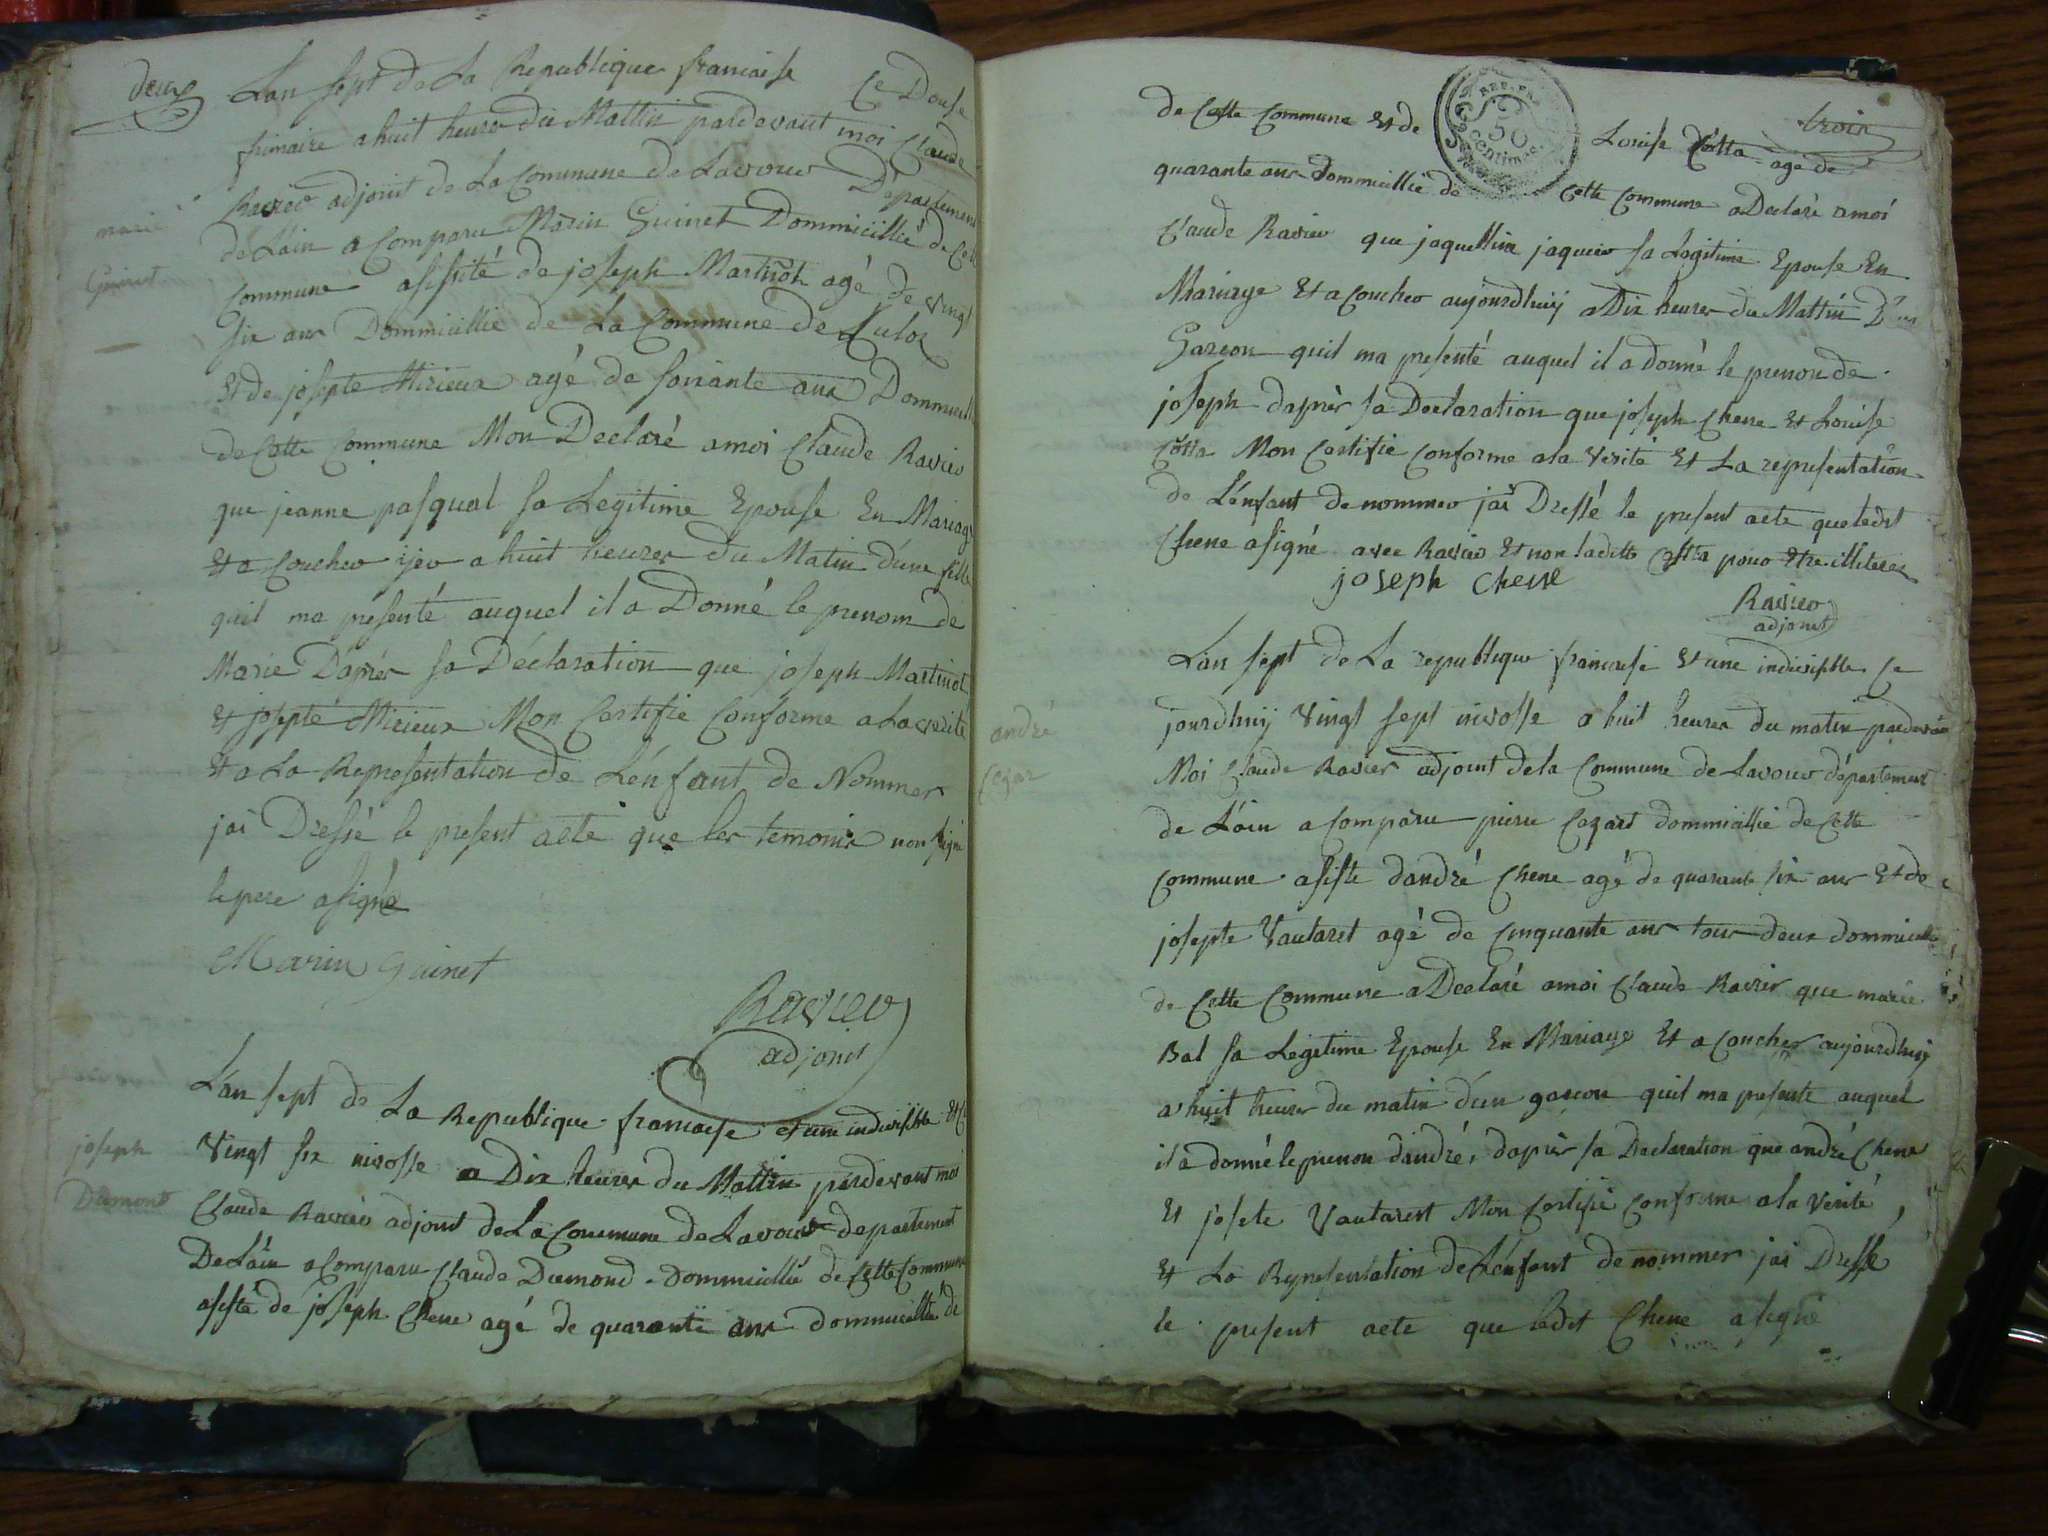 deux
Lan sept de La Republique francaise Ce Douse
frimaire a huit heures du Mattin pardevant moi Claude
Ravier adjoint de La Commune de Lavour Département
de Lain a Comparu Marin Guinet Dommicillié de Cette
Commune assisté de joseph Martinot agé de vingt
six ans Dommicillié de La Commune de Culoz
Et de josepte Mirieux agé de soixante ans Dommicill
de Cette Commune Mon Declaré amoi Claude Ravier
que jeanne pasqual sa Legitime Epouse En Mariage
Et a Coucher ier a huit heures du Matin d'une fille
quil ma presenté auquel il a Donné le prenom de
Marie D'aprés sa Déclaration que joseph Martinot
Et josepte Mirieux Mon Certifié Conforme a La verité
Et a La Representation de L'énfant de Nommer
jai Dressé le present acte que les temoins non signé
le pere a signé
Marin Guinet
Ravier
adjoint
marie
Guinet
L'an sept de La Republique francaise et une indivisible et Ce
Vingt six nivosse a Dix heures du Mattin pardevant moi
Claude Ravier adjoint de La Commune de Lavour departement
De Láin a Comparu Claude Dumond Dommicillié de Cette Commune
asisté de joseph Chene agé de quarante ans dommicillié de
joseph
Dumond
troix
de Cette Commune et de Louise Cotta agé de
REP. FRA.
50
Centimes.
quarante ans Dommicillié de Cette Commune a Declaré amoi
Claude Ravier que jaquelline jaquier sa Legitime Epouse En
Mariage Et a Coucher aujourdhuij a Dix heures du Mattin D'un
Garcon quil ma presenté auquel il a donné le prenon de
joseph daprèr sa Declaration que joseph Chene et Louise
Cotta Mon Certifié Conforme a la Verité Et La representation
de Lénfant de nommer jai Dressé le present acte que ledit
Chene a signé avec Ravier Et non laditte Cotta pour Etre illiterez
joseph chene
Ravier
adjoint
L'an sept de La republique francaise et une indivisible Ce
jourdhuij Vingt sept nivosse a huit heures du matin pardevan
Moi Claude Ravier adjoint de la Commune de Lavour département
de Láin a Comparu pierre Cezard dommicillié de Cette
Commune asiste dandré Chene agé de quarante six ans Et de
josepte Vautaret agé de Cinquante ans tour deux dommicillié
de Cette Commune a Declaré amoi Claude Ravier que marie
Bal sa Legitime Epouse En Mariage Et a Coucher aujourdhuij
a huit heures du matin d'un garcon quil ma presenté auquel
il a donné le prenon dandré, daprèr sa Declaration que andré Chene
Et josete Vautarest Mon Certifié Conforme a la Verité
Et La Representation de L'énfant de nommer jai Dressé
le present acte que ledit Chene a signé
andré
Cezar